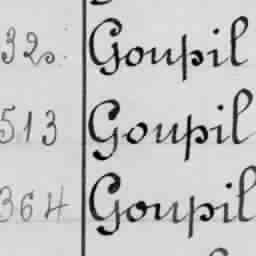 320. Goupil
513 Goupil
364 Goupil